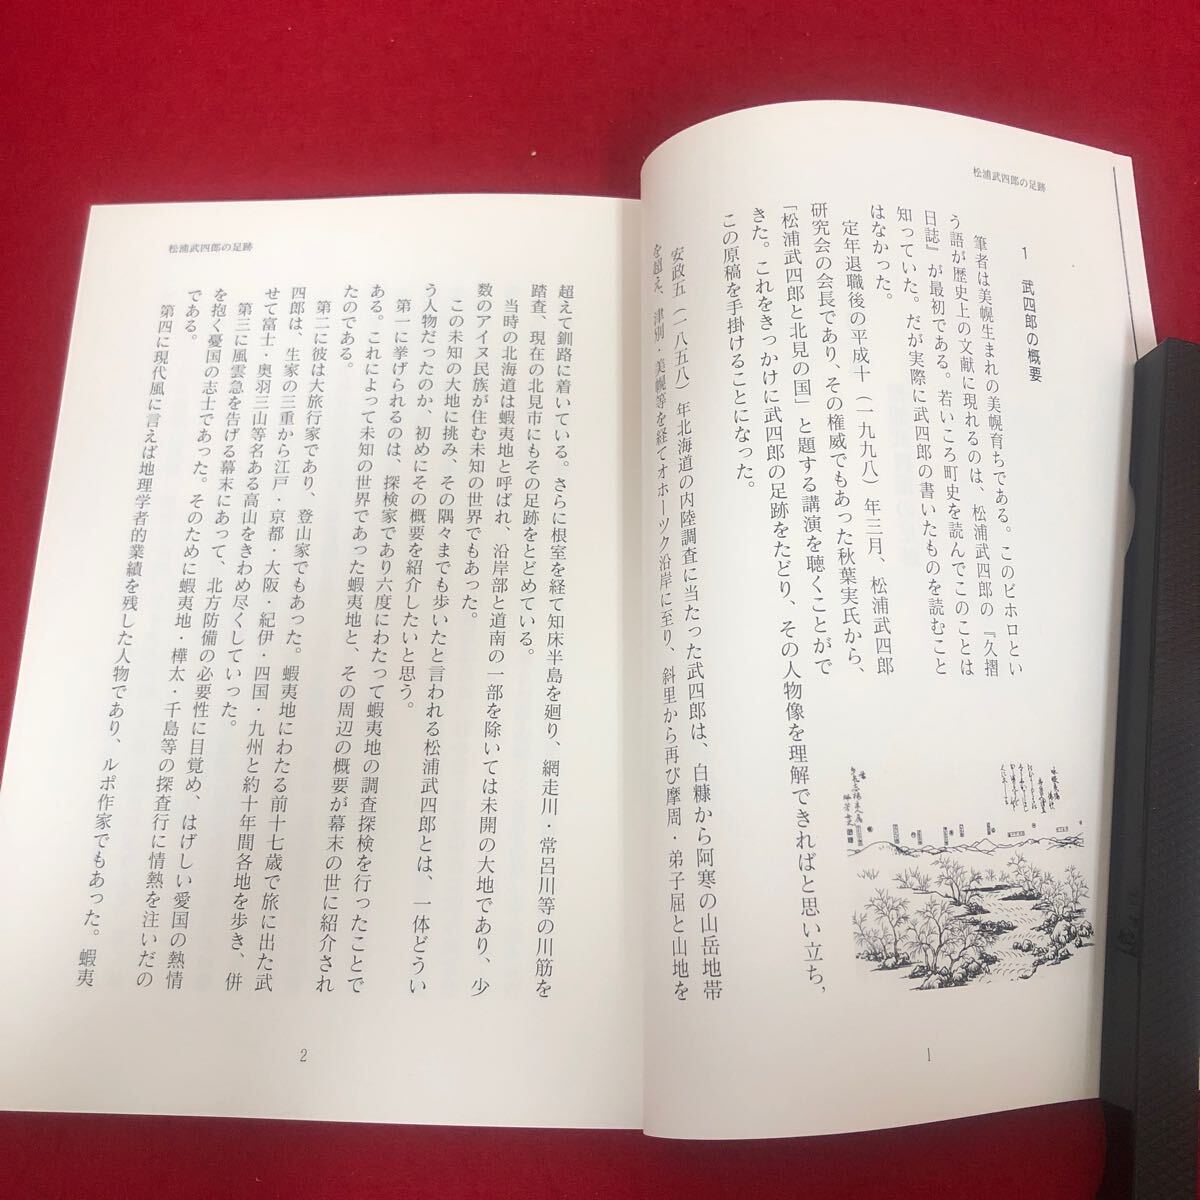 松浦武四郎の足跡
1　武四郎の概要
筆者は美幌生まれの美幌育ちである。このビホロとい
う語が歴史上の文献に現れるのは、松浦武四郎の『久摺
日誌』が最初である。若いころ町史を読んでこのことは
知っていた。だが実際に武四郎の書いたものを読むこと
はなかった。
定年退職後の平成十（一九九八）年三月、松浦武四郎
研究会の会長であり、その権威でもあった秋葉実氏から、
「松浦武四郎と北見の国」と題する講演を聴くことがで
きた。これをきっかけに武四郎の足跡をたどり、その人物像を理解できればと思い立ち、
この原稿を手掛けることになった。
安政五（一八五八）年北海道の内陸調査に当たった武四郎は、白糠から阿寒の山岳地帯
を超え、津別・美幌等を経てオホーツク沿岸に至り、斜里から再び摩周・弟子屈と山地を
1
松浦武四郎の足跡
超えて釧路に着いている。さらに根室を経て知床半島を廻り、網走川・常呂川等の川筋を
踏査、現在の北見市にもその足跡をとどめている。
当時の北海道は蝦夷地と呼ばれ、沿岸部と道南の一部を除いては未開の大地であり、少
数のアイヌ民族が住む未知の世界でもあった。
この未知の大地に挑み、その隅々までも歩いたと言われる松浦武四郎とは、一体どうい
う人物だったのか、初めにその概要を紹介したいと思う。
第一に挙げられるのは、探検家であり六度にわたって蝦夷地の調査探検を行ったことで
ある。これによって未知の世界であった蝦夷地と、その周辺の概要が幕末の世に紹介され
たのである。
第二に彼は大旅行家であり、登山家でもあった。蝦夷地にわたる前十七歳で旅に出た武
四郎は、生家の三重から江戸・京都・大阪・紀伊・四国・九州と約十年間各地を歩き、併
せて富士・奥羽三山等名ある高山をきわめ尽くしていった。
第三に風雲急を告げる幕末にあって、北方防備の必要性に目覚め、はげしい愛国の熱情
を抱く憂国の志士であった。そのために蝦夷地・樺太・千島等の探査行に情熱を注いだの
である。
第四に現代風に言えば地理学者的業績を残した人物であり、ルポ作家でもあった。蝦夷
2